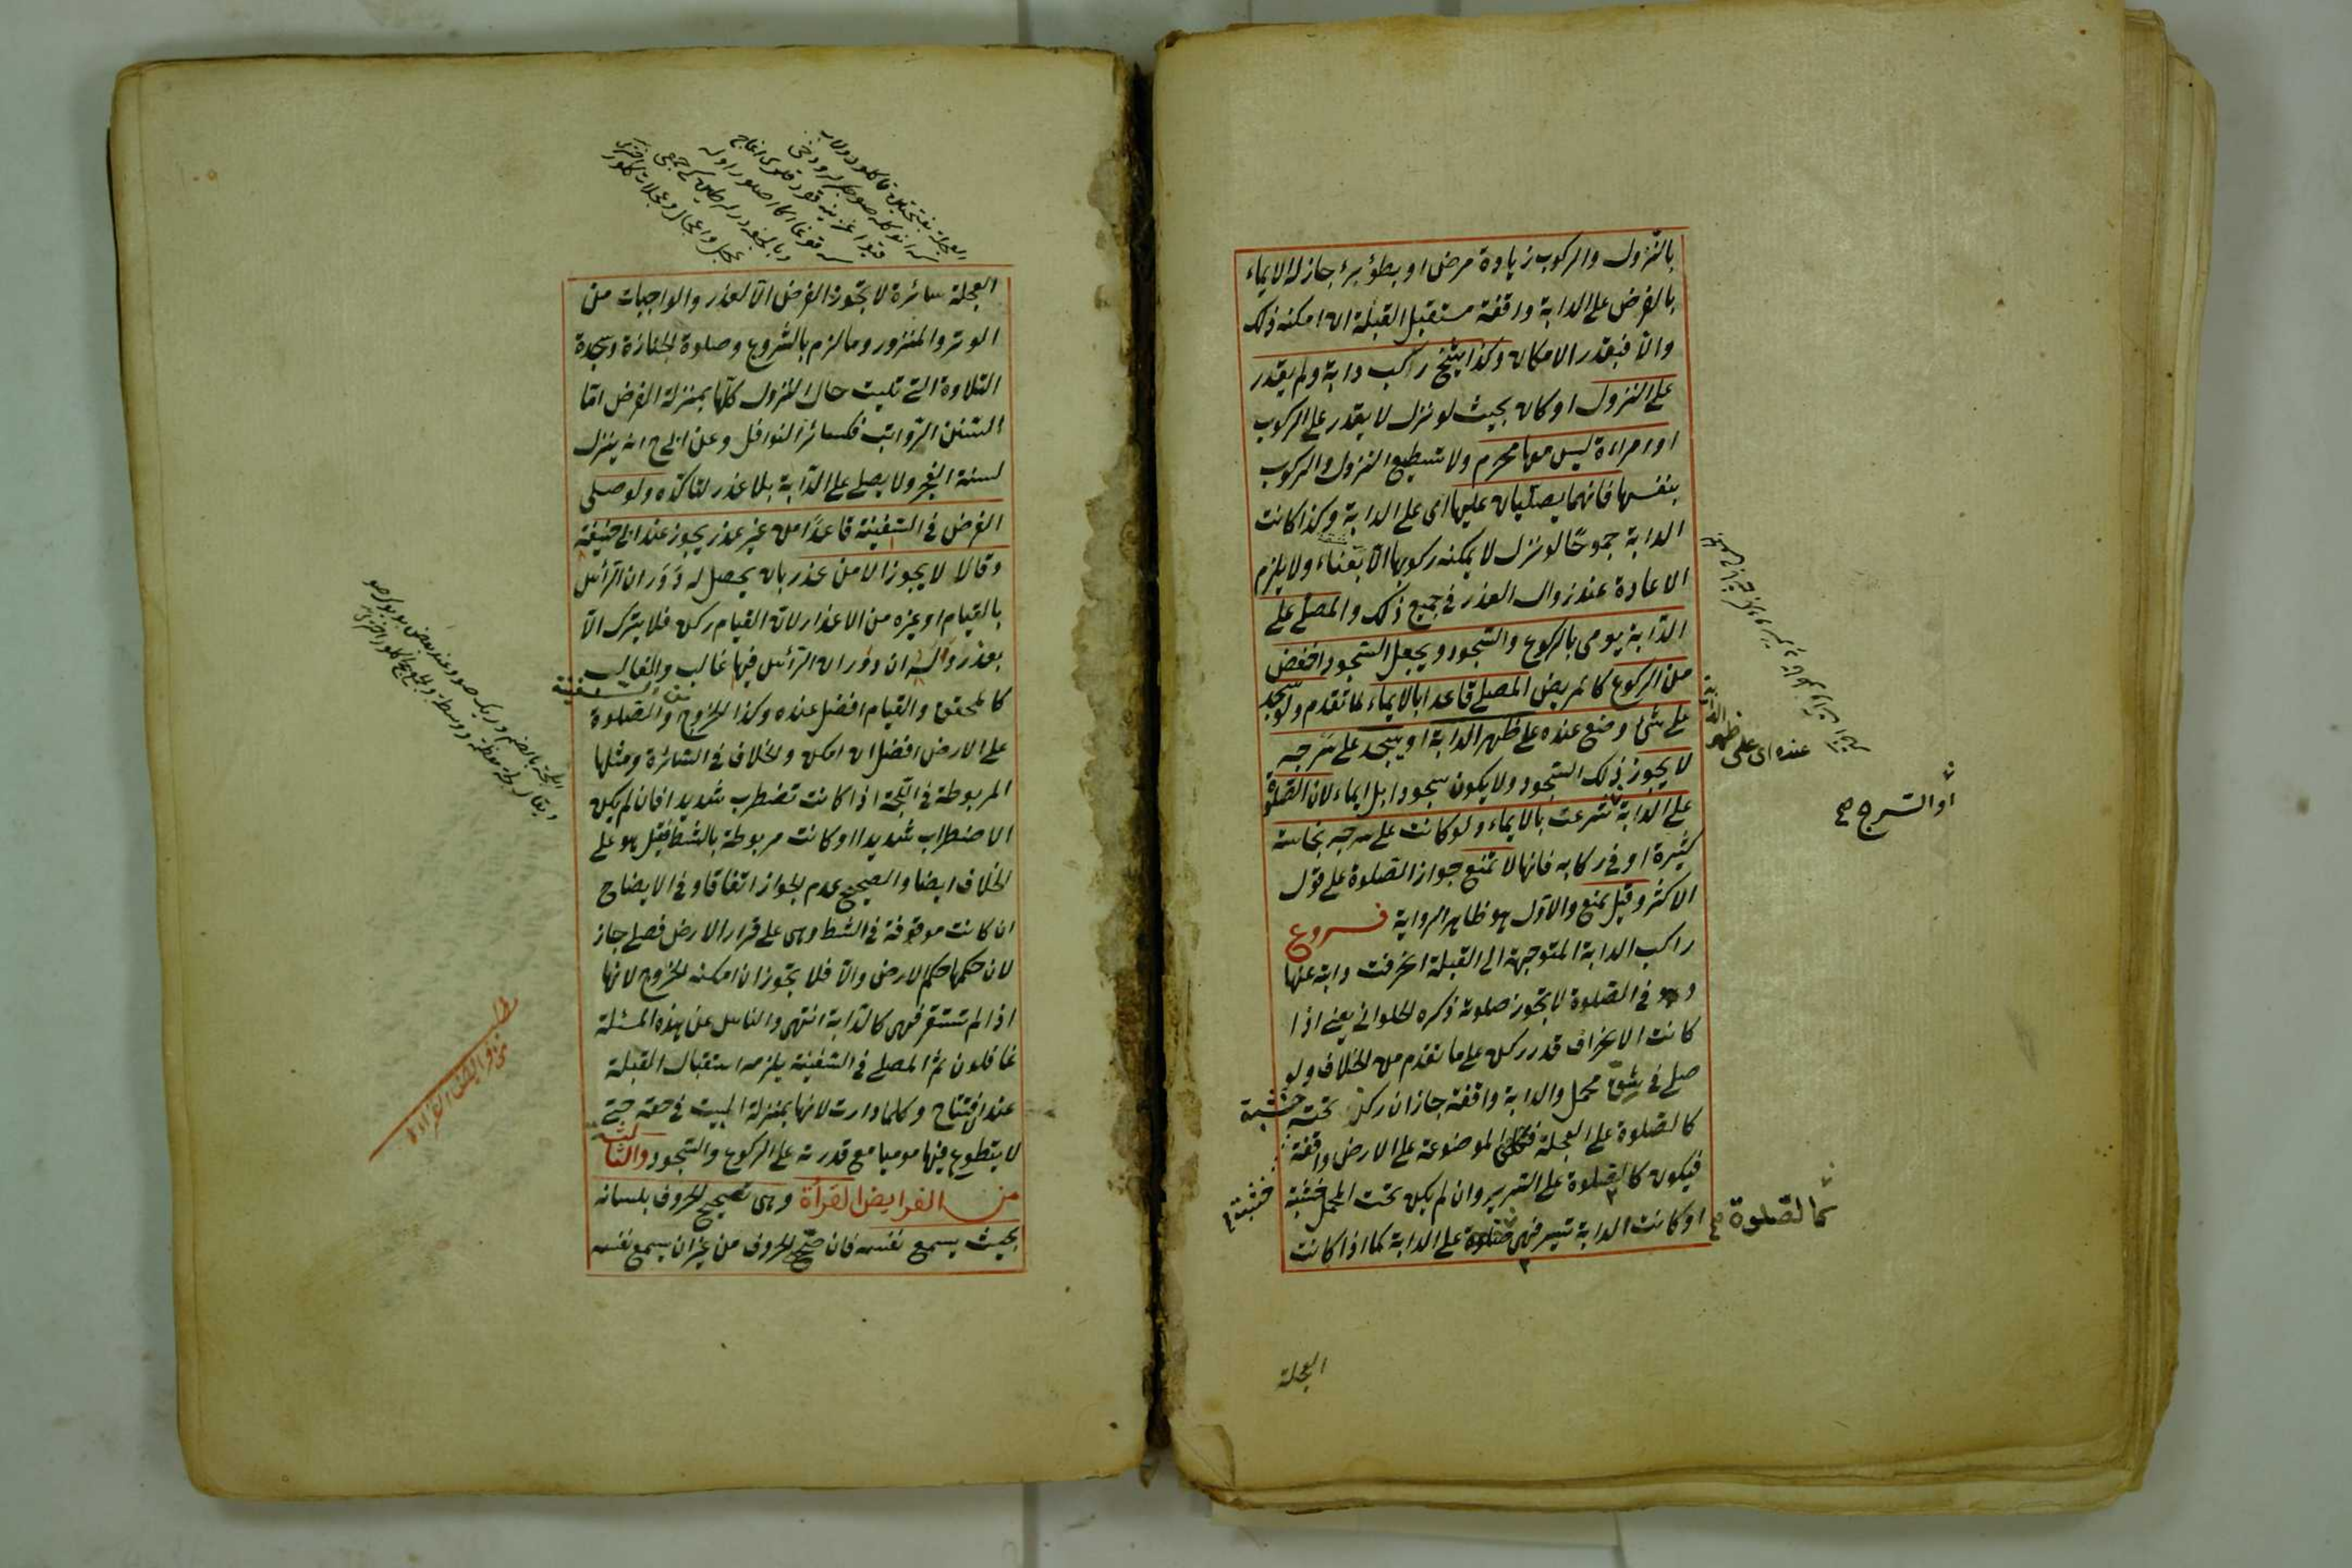 بالنزول والركوب زيادة مرض او بطؤ برء جاز له الايماء
بالفرض على الدابة واقفة مستقبل القبلة ان امكنه ذلك
والا فبقدر الامكان وكذا شيخ راكب دابة ولم يقدر
على النزول او كان بحيث لو نزل لا يقدر على الركوب
او امراءة ليس معها محرم ولا تستطيع النزول والركوب
بنفسها فانهما يصليان عليها اى على الدابة وكذا كانت
الدابة جموحًا لو نزل لا يمكنه ركوبها الا بعناء ولا يلزم
الاعادة عند زوال العذر فى جميع ذلك والمصلى على
الدابة يومى بالركوع والسجود ويجعل السجود اخفض
من الركوع كالمريض المصلى قاعدا بالايماء لما تقدم ولو سجد
على شئ وضع عنده على ظهر الدابة او يسجد على سرجه
لا يجوز ذلك السجود ولا يكون سجودا بل ايماء لان الصلوة
على الدابة شرعت بالايماء ولو كانت على سرجه نجاسة
كثيرة او فى ركابه فانها لا تمنع جواز الصلوة على قول
الاكثر وقيل تمنع والاول هو ظاهر الرواية فروع
راكب الدابة المتوجهة الى القبلة انحرفت دابته عنها
وهو فى الصلوة لا تجوز صلوته ذكره الحلوانى يعنى اذا
كانت الانحراف قدر ركن على ما تقدم من الخلاف ولو
صلى فى شق محمل والدابة واقفة جاز ان ركز تحته خشبة
كالصلوة على العجلة الموضوعة على الارض واقفة
فيكون كالصلوة على السرير وان لم يكن تحت المحمل خشبة
او كانت الدابة تسير فهى صلوة على الدابة كما اذا كانت
عنده اى على ظهر الدابة
او السرج صح
كالصلوة صح
خشبة
العجلة
العجلة سائرة لا تجوز الفرض الا لعذر والواجبات من
الوتر والمنذور وما لزم بالشروع وصلوة الجنازة وسجدة
التلاوة التى تليت حال النزول كلها بمنزلة الفرض اما
السنن الرواتب فكسائر النوافل وعن ابى ح انه ينزل
لسنة الفجر ولا يصلى على الدابة بلا عذر لتاكده ولو صلى
الفرض فى السفينة قاعدًا من غير عذر يجوز عند ابى حنيفة
وقالا لا يجوز الا من عذر بان يحصل له دَوَران الرأس
بالقيام او غيره من الاعذار لان القيام ركن فلا يترك الا
بعذر وله ان دوران الرأس فيها غالب والغالب
كالمحقق والقيام افضل عنده وكذا الخروج من السفينة والصلوة
على الارض افضل ان امكن والخلاف فى السائرة ومثلها
المربوطة فى اللجة اذا كانت تضطرب شديدا فان لم يكن
الاضطراب شديدا او كانت مربوطة بالشط فقيل هو على
الخلاف ايضا والصحيح عدم الجواز اتفاقا وفى الايضاح
ان كانت موقوفة فى الشط وهى على قرار الارض فصلى جاز
لان حكمها حكم الارض والا فلا يجوز ان امكنه الخروج لانها
اذا لم تستقر فهى كالدابة انتهى والناس عن هذه المسئلة
غافلون ثم المصلى فى السفينة يلزمه استقبال القبلة
عند الافتتاح وكلما دارت لانها بمنزلة البيت فى حقه حتى
لا يتطوع فيها موميا مع قدرته على الركوع والسجود والثالثة
من الفرايض القرأة وهى تصحيح الحروف بلسانه
بحيث يسمع نفسه فان صحح الحروف من غير ان يسمع نفسه